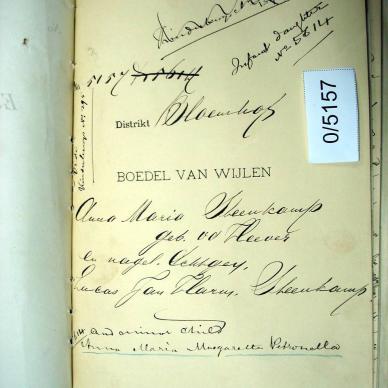 Infant daughter
No 5614
5157
0/5157
Distrikt Bloemhof
BOEDEL VAN WIJLEN
Anna Maria Steenkamp
geb. v d Heever
en nagel.
Lucas Jan Harm. Steenkamp
and minor child
Anna Maria Margaretta Petronella